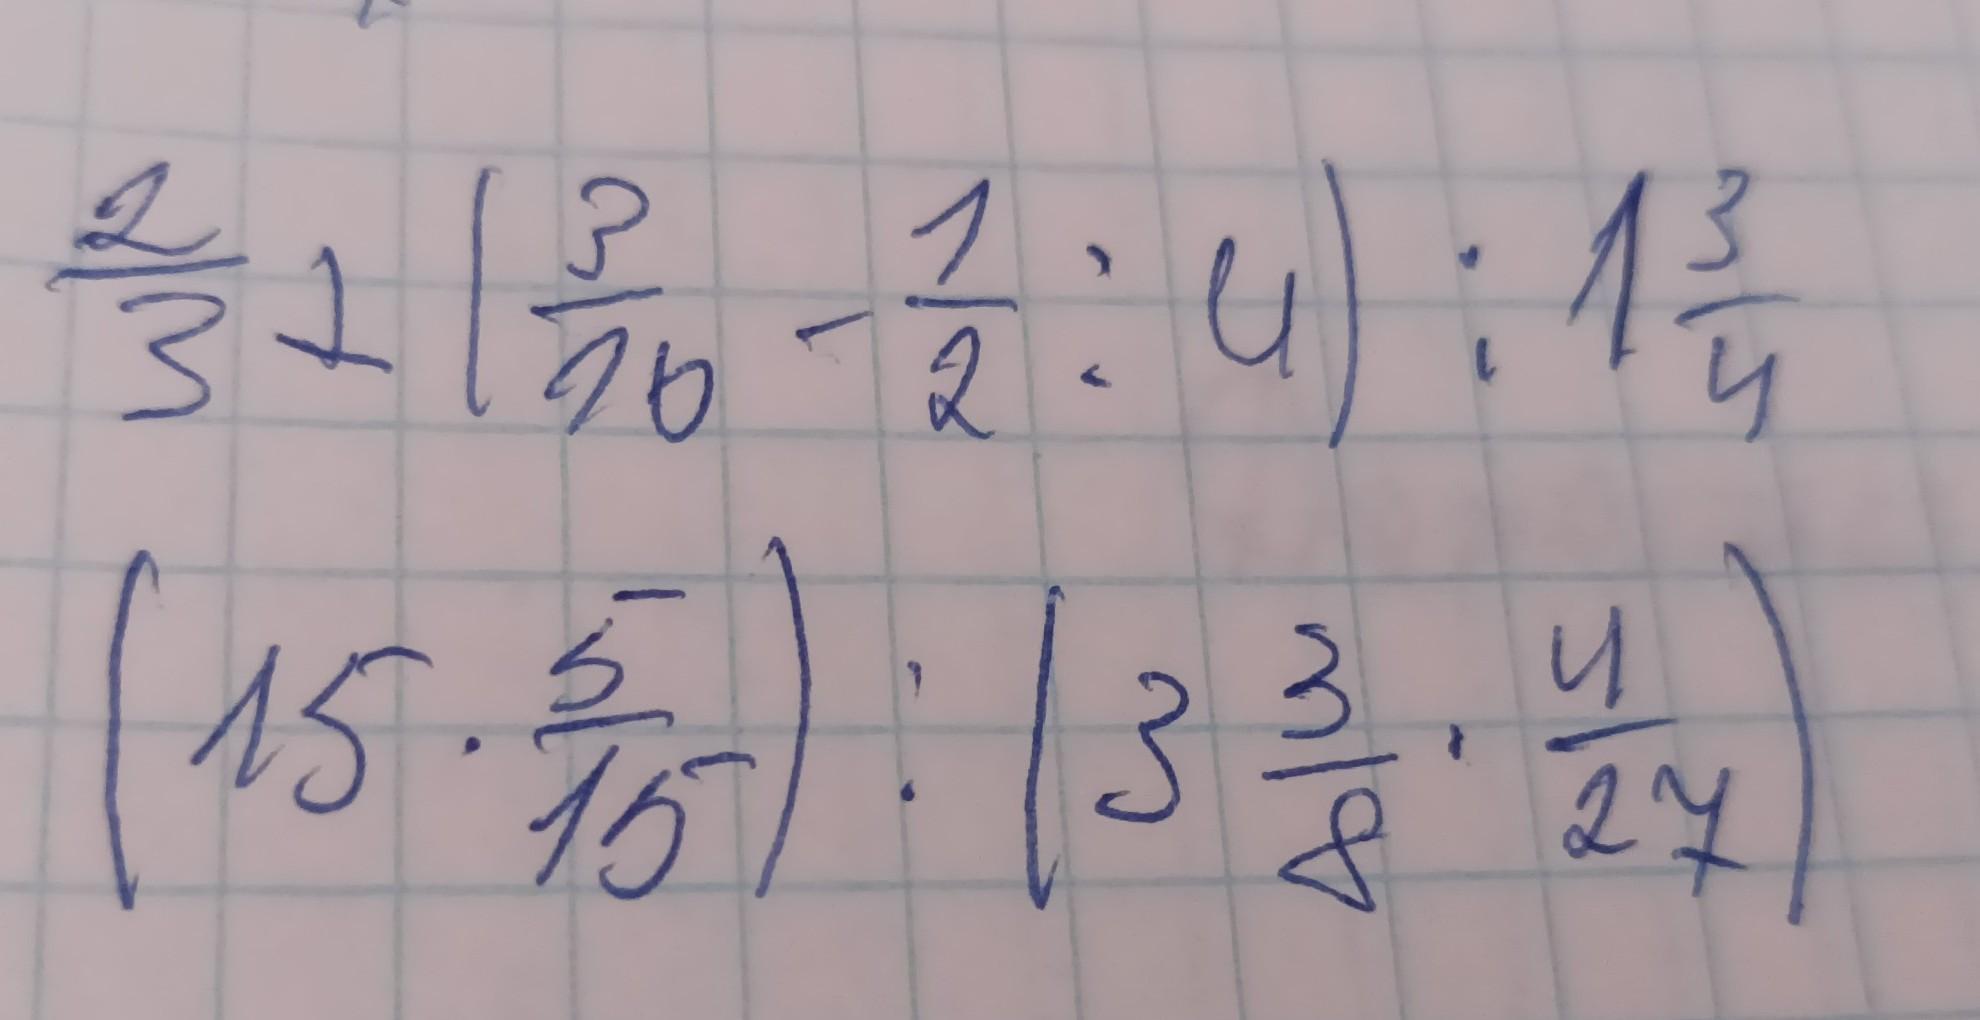 2/3 + (3/10 - 1/2 : 4) : 1 3/4
(15 · 5/15) : (3 3/8 · 4/27)